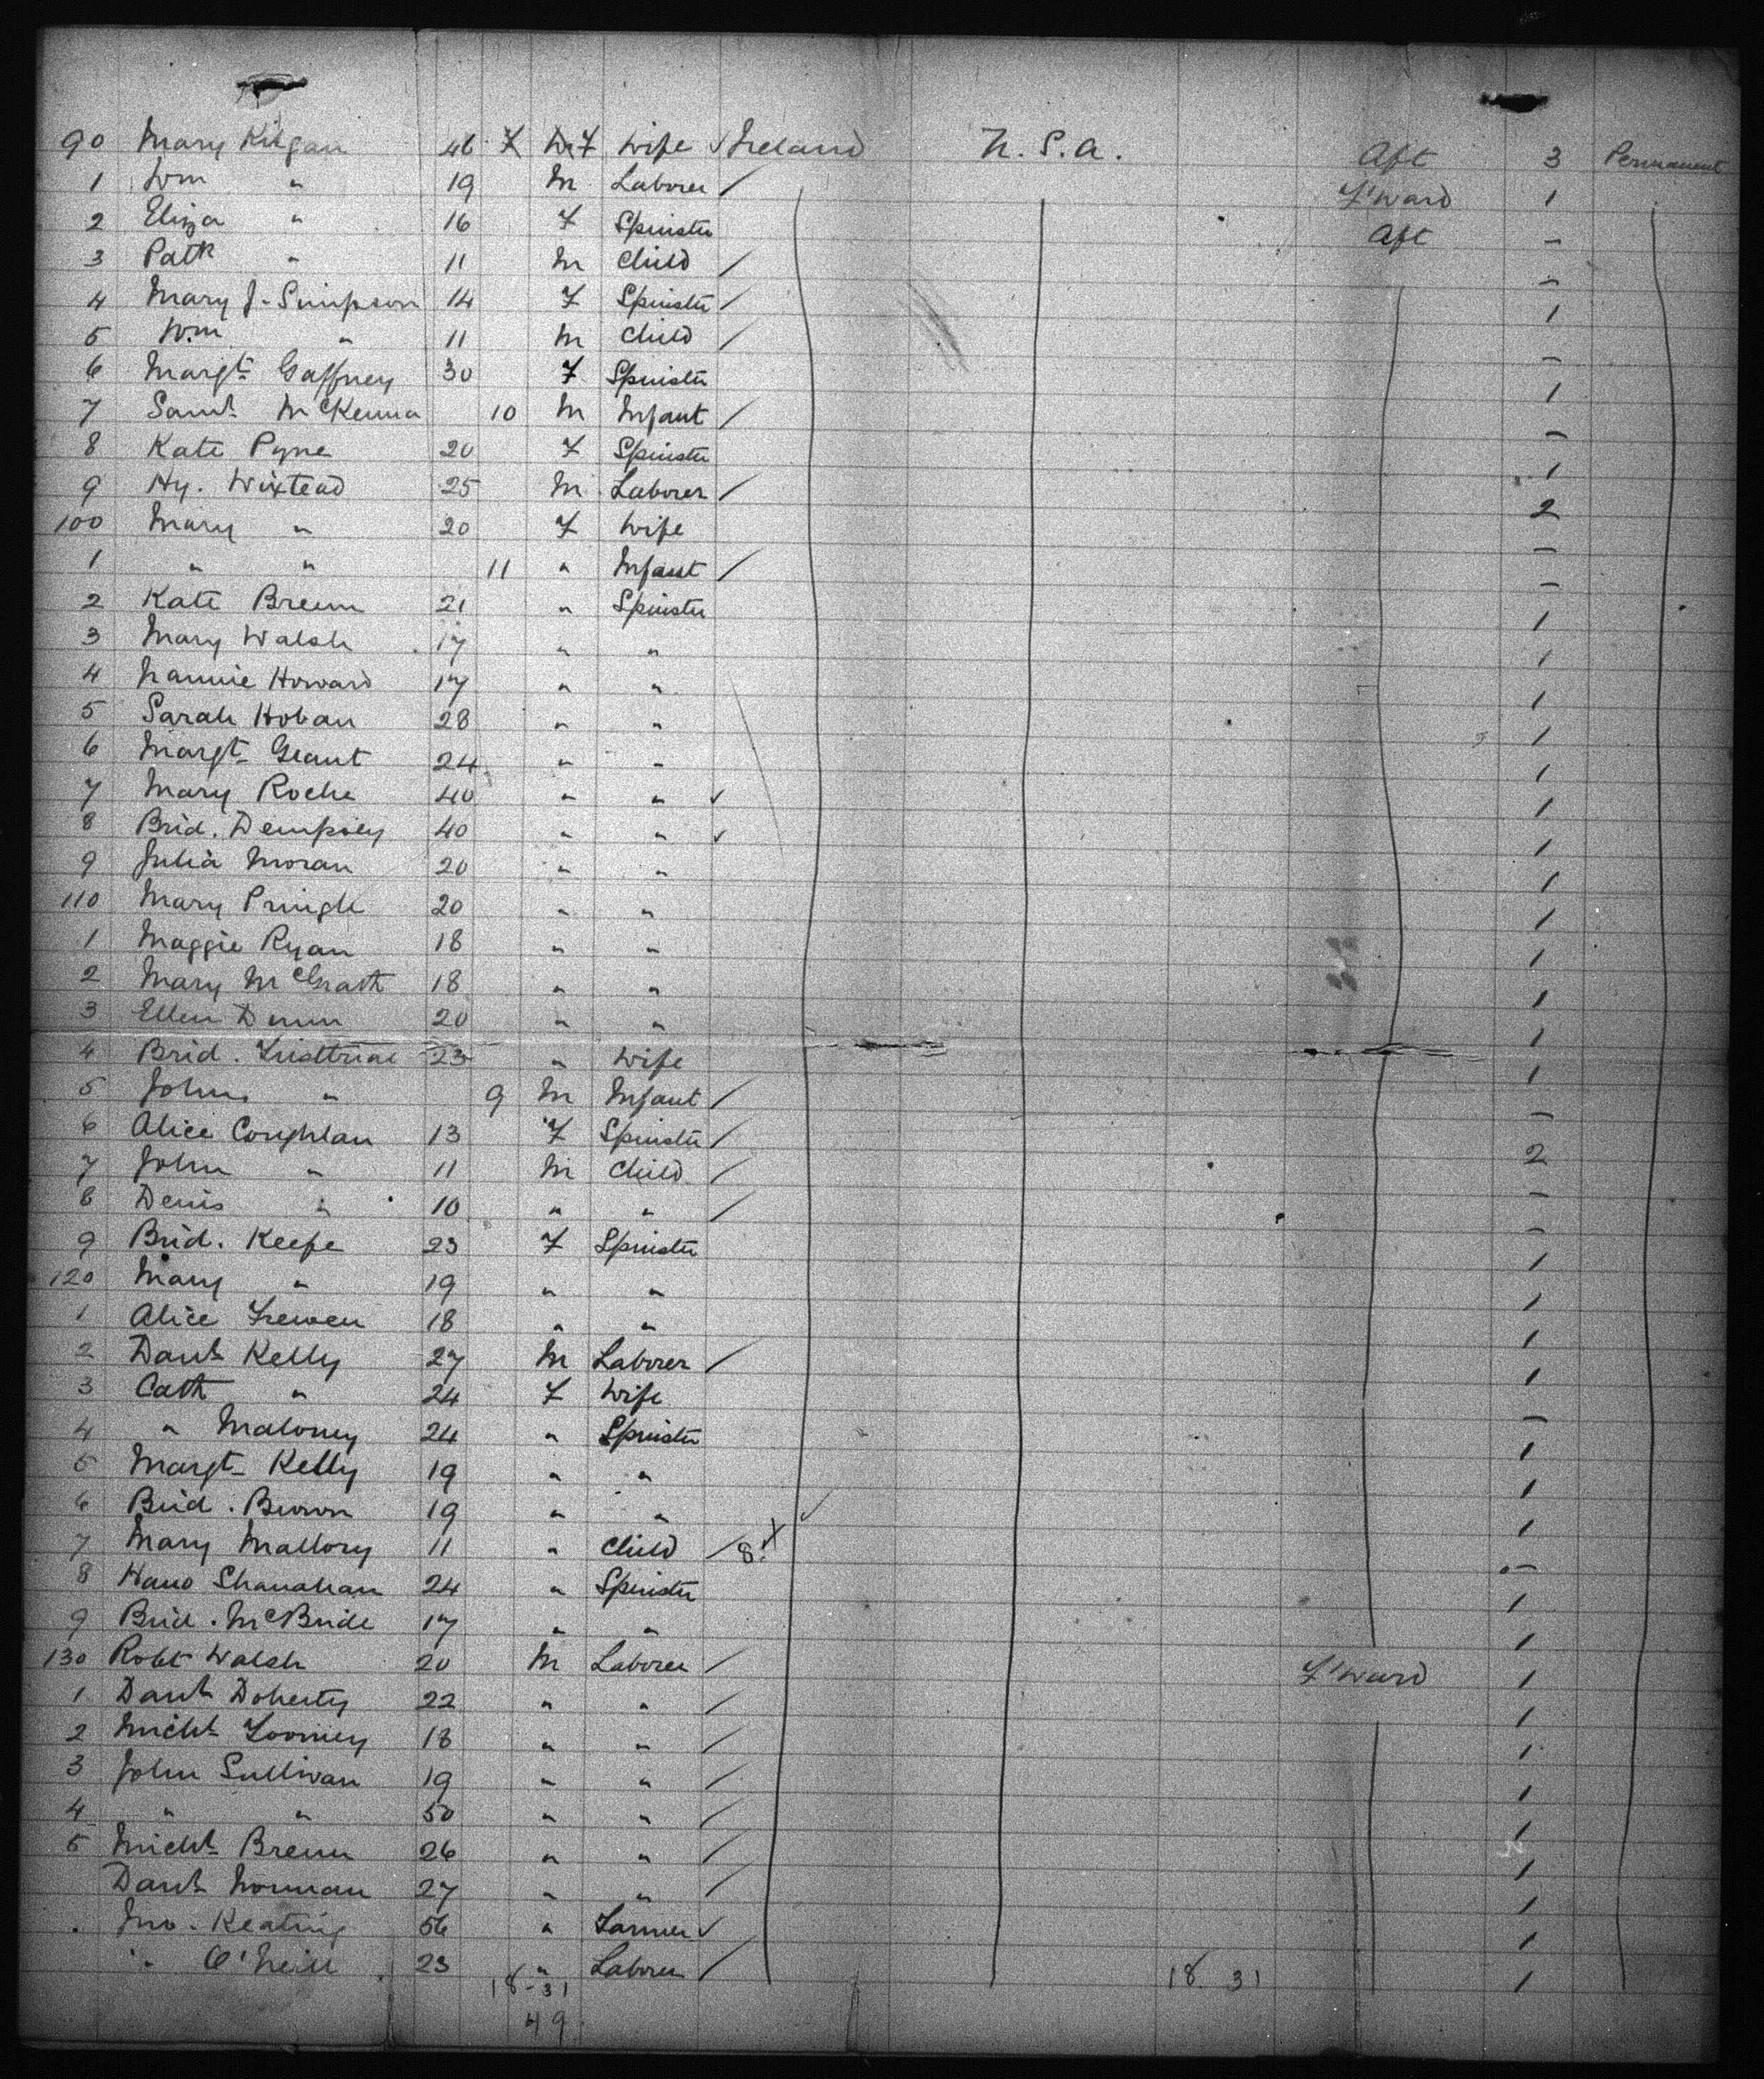 90 Mary Kilgan 46 F Wife Ireland U.S.A. Aft 3 Permanent
1 Wm " 19 M Laborer / F'ward 1
2 Eliza " 16 F Spinster Aft -
3 Patk " 11 M Child / -
4 Mary J. Simpson 14 F Spinster / 1
5 Wm " 11 M Child / -
6 Margt Gaffney 30 F Spinster 1
7 Saml McKenna 10 M Infant / -
8 Kate Pyne 20 F Spinster 1
9 Hy. Wixtead 25 M Laborer / 2
100 Mary " 20 F Wife -
1 " " 11 " Infant / -
2 Kate Breen 21 " Spinster 1
3 Mary Walsh 17 " " 1
4 Nannie Howard 17 " " 1
5 Sarah Hoban 28 " " 1
6 Margt Geant 24 " " 1
7 Mary Roche 40 " " ✓ 1
8 Brid. Dempsey 40 " " ✓ 1
9 Julia Moran 20 " " 1
110 Mary Pringle 20 " " 1
1 Maggie Ryan 18 " " 1
2 Mary McGrath 18 " " 1
3 Ellen Dunn 20 " " 1
4 Brid. 23 " Wife 1
5 John " 9 M Infant / -
6 Alice Coughlan 13 F Spinster / 2
7 John " 11 M Child / -
8 Denis " 10 " " / -
9 Brid. Keefe 23 F Spinster 1
120 Mary " 19 " " 1
1 Alice Frewen 18 " " 1
2 Danl Kelly 27 M Laborer / 1
3 Cath " 24 F Wife -
4 " Maloney 24 " Spinster 1
5 Margt Kelly 19 " " 1
6 Brid. Brown 19 " " ✓ 1
7 Mary Mallory 11 " Child / 8 x -
8 Hano Shanahan 24 " Spinster 1
9 Brid. McBride 17 " " 1
130 Robt Walsh 20 M Laborer / F'ward 1
1 Danl Doherty 22 " " / 1
2 Michl Toomey 18 " " / 1
3 John Sullivan 19 " " / 1
4 " " 50 " " / 1
5 Michl Breen 26 " " / 1
Danl Noonan 27 " " / 1
Jno. Keating 56 " Farmer ✓ 1
" O'Neill 23 " Laborer / 1
18-31 18 31
49